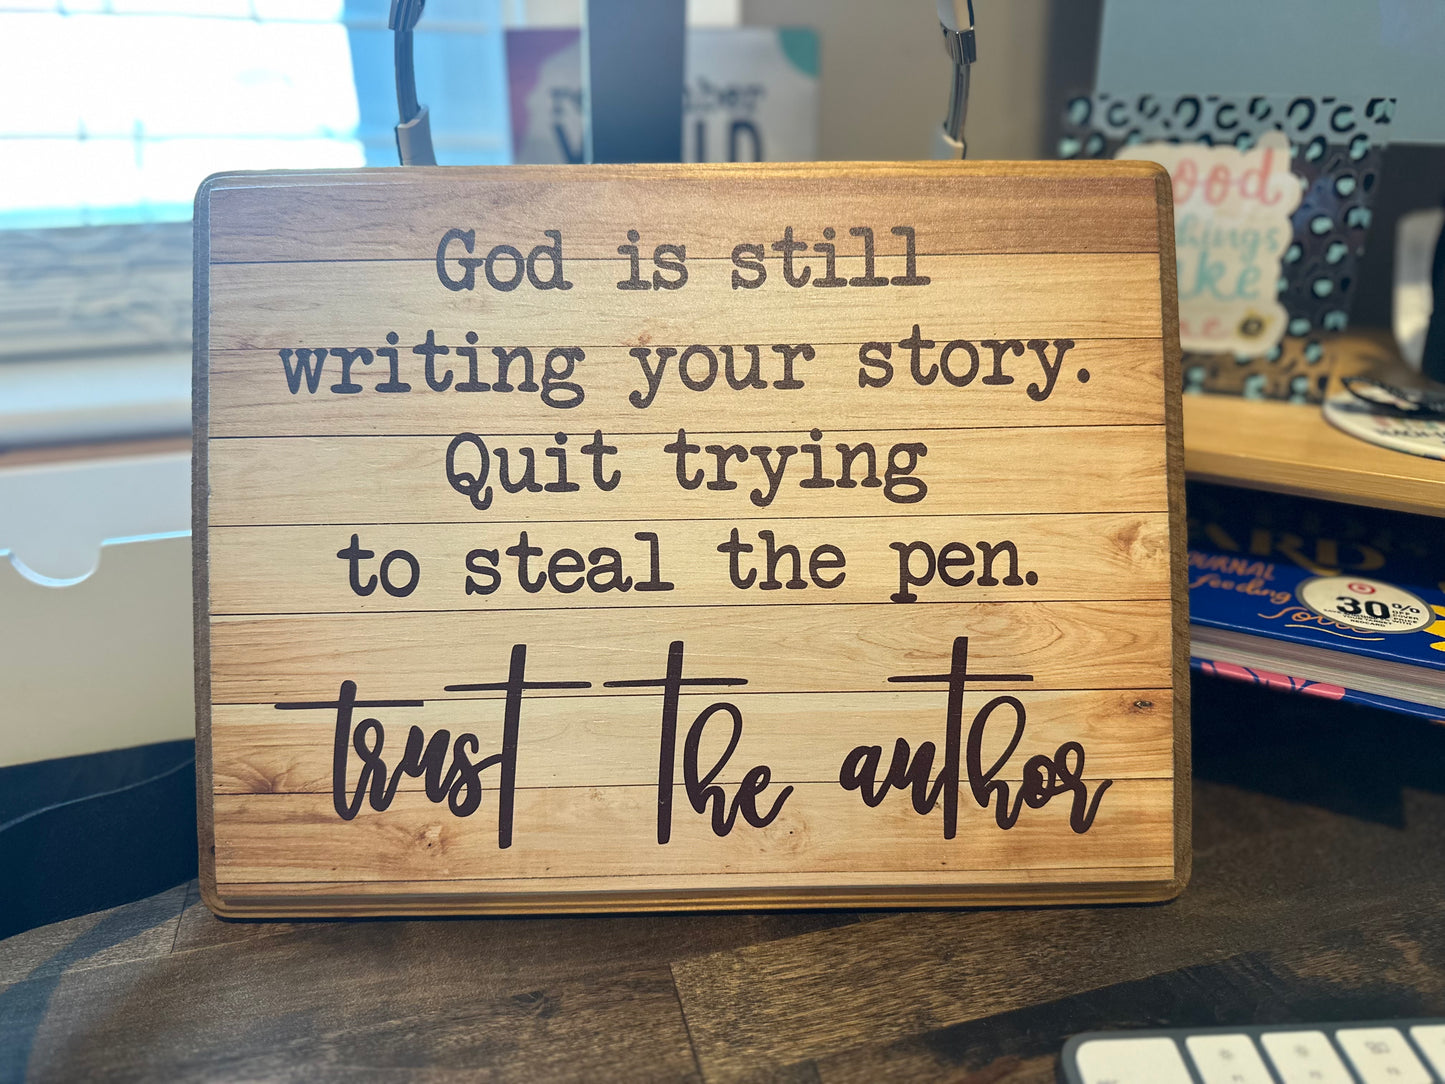 God is still
writing your story.
Quit trying
to steal the pen.
trust the author
ood
things
ke
JOURNAL
feeding
30%
OFF